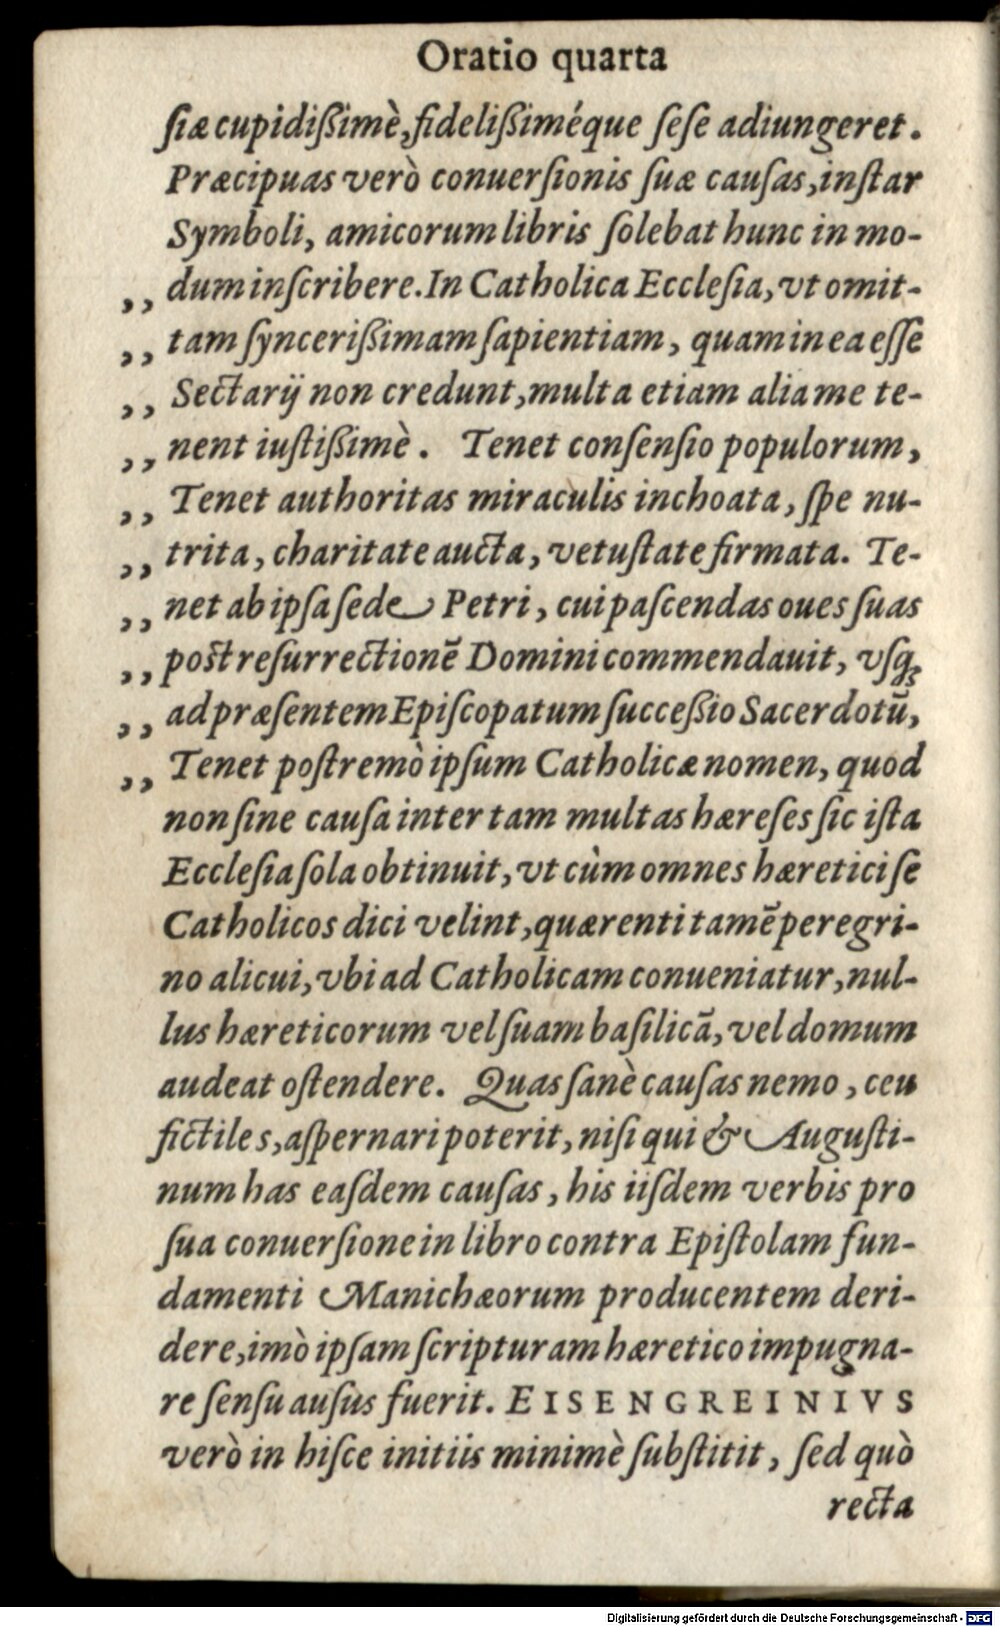 Oratio quarta
ſiæ cupidißimè, fidelißiméque ſeſe adiungeret.
Præcipuas verò conuerſionis ſuæ cauſas, inſtar
Symboli, amicorum libris ſolebat hunc in mo-
,, dum inſcribere. In Catholica Eccleſia, vt omit-
,, tam ſyncerißimam ſapientiam, quam in ea eſſe
,, Sectarij non credunt, multa etiam alia me te-
,, nent iuſtißimè. Tenet conſenſio populorum,
,, Tenet authoritas miraculis inchoata, ſpe nu-
,, trita, charitate aucta, vetuſtate firmata. Te-
,, net ab ipſa ſede Petri, cui paſcendas oues ſuas
,, poſt reſurrectionē Domini commendauit, vſq;
,, ad præſentem Epiſcopatum ſucceßio Sacerdotū,
,, Tenet poſtremò ipſum Catholicæ nomen, quod
non ſine cauſa inter tam multas hæreſes ſic iſta
Eccleſia ſola obtinuit, vt cùm omnes hæretici ſe
Catholicos dici velint, quærenti tamē peregri-
no alicui, vbi ad Catholicam conueniatur, nul-
lus hæreticorum vel ſuam baſilicā, vel domum
audeat oſtendere. Quas ſanè cauſas nemo, ceu
fictiles, aſpernari poterit, niſi qui & Auguſti-
num has eaſdem cauſas, his iiſdem verbis pro
ſua conuerſione in libro contra Epiſtolam fun-
damenti Manichæorum producentem deri-
dere, imò ipſam ſcripturam hæretico impugna-
re ſenſu auſus fuerit. EISENGREINIVS
verò in hiſce initiis minimè ſubſtitit, ſed quò
recta
Digitalisierung gefördert durch die Deutsche Forschungsgemeinschaft - DFG